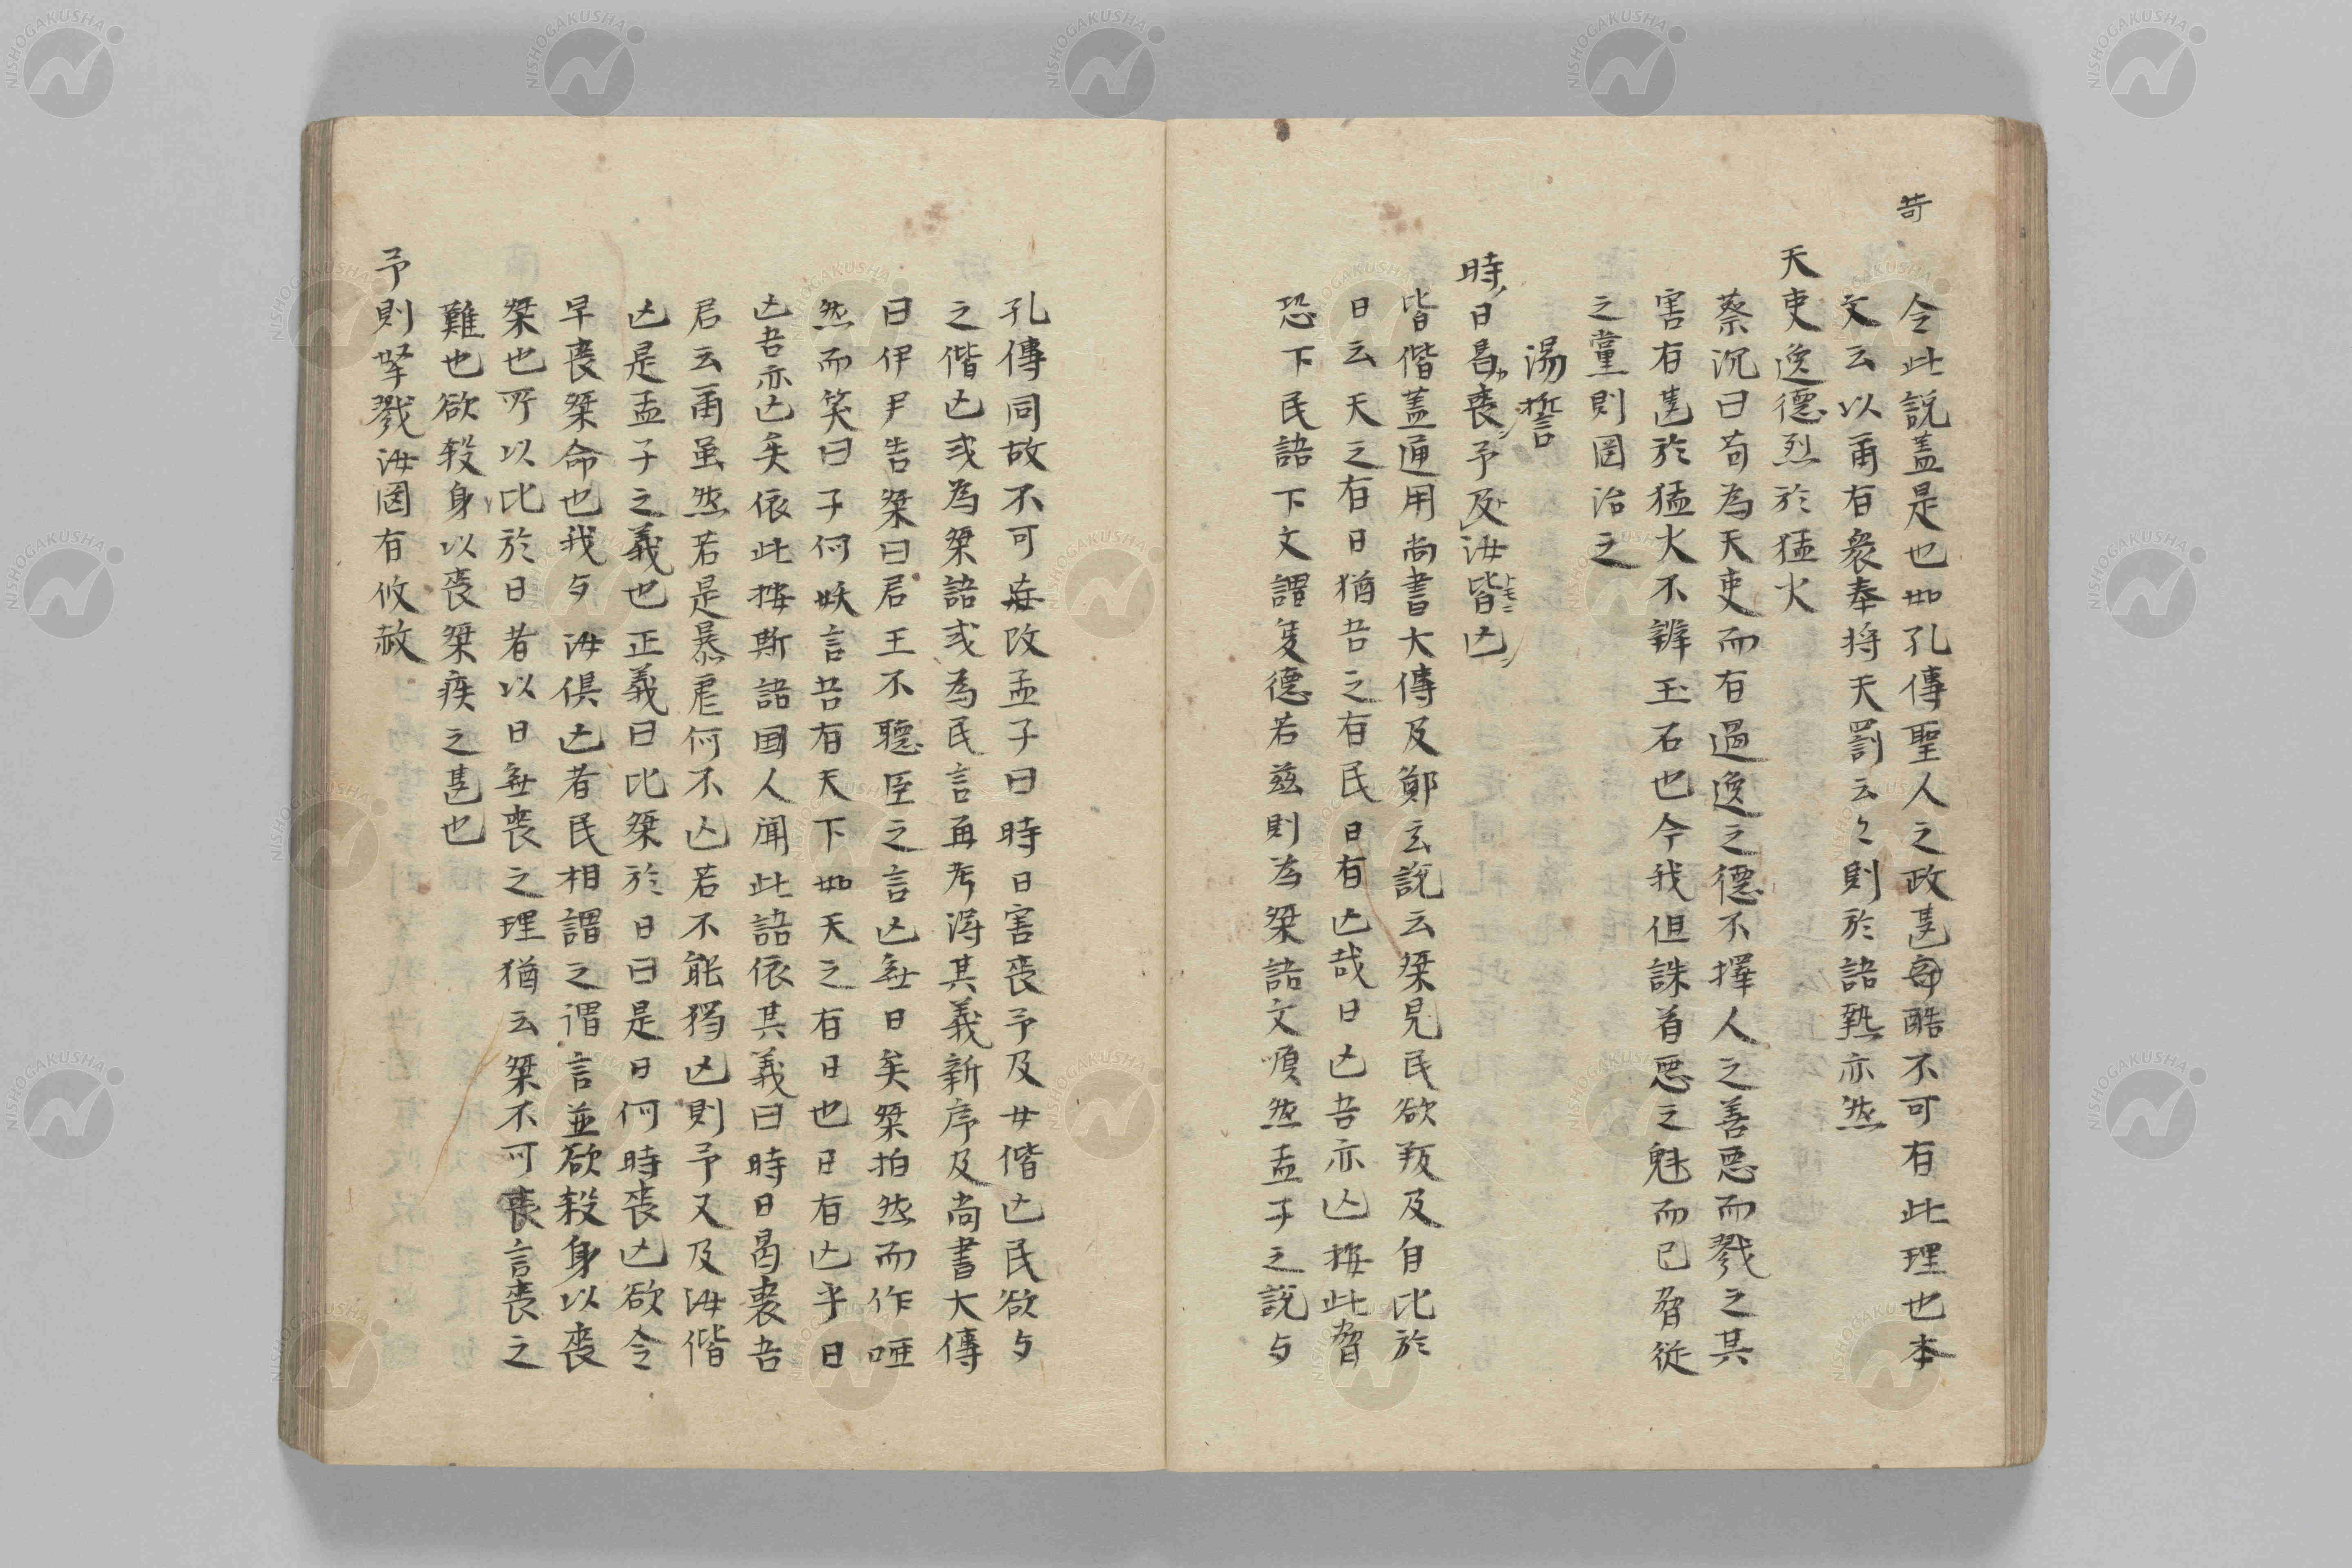 苛
令此説蓋是也如孔傳聖人之政甚苛酷不可有此理也本
文云以甬有衆奉将天罰云々則於語熟亦然
天吏逸德烈於猛火
蔡沉曰苟為天吏而有過逸之德不擇人之善悪而戮之其
害有甚於猛火不辨玉石也今我但誅首悪之魁而已脅従
之黨則罔治之
湯誓
時日曷喪予及汝皆亡
皆偕蓋通用尚書大傳及鄭玄説云桀見民欲叛及自比於
日云天之有日猶吾之有民日有亡哉日亡吾亦亡按此脅
恐下民語下文謂夏德若茲則為桀語文順然孟子之説与
孔傳同故不可無改孟子曰時日害喪予及女偕亡民欲与
之偕亡或為桀語或為民言再考得其義新序及尚書大傳
曰伊尹告桀曰君王不聽臣之言亡無日矣桀拍然而作唖
然而笑曰子何妖言吾有天下如天之有日也日有亡乎日
亡吾亦亡矣依此按斯語国人聞此語依其義曰時日曷喪吾
君云甬虽然若是暴虐何不亡若不能獨亡則予又及汝偕
亡是孟子之義也正義曰比桀於日曰是日何時喪亡欲令
早喪桀命也我与汝俱亡者民相謂之謂言並欲殺身以喪
桀也所以比於日者以日無喪之理猶云桀不可喪言喪之
難也欲殺身以喪桀疾之甚也
予則孥戮汝罔有攸赦
NISHOGAKUSHA